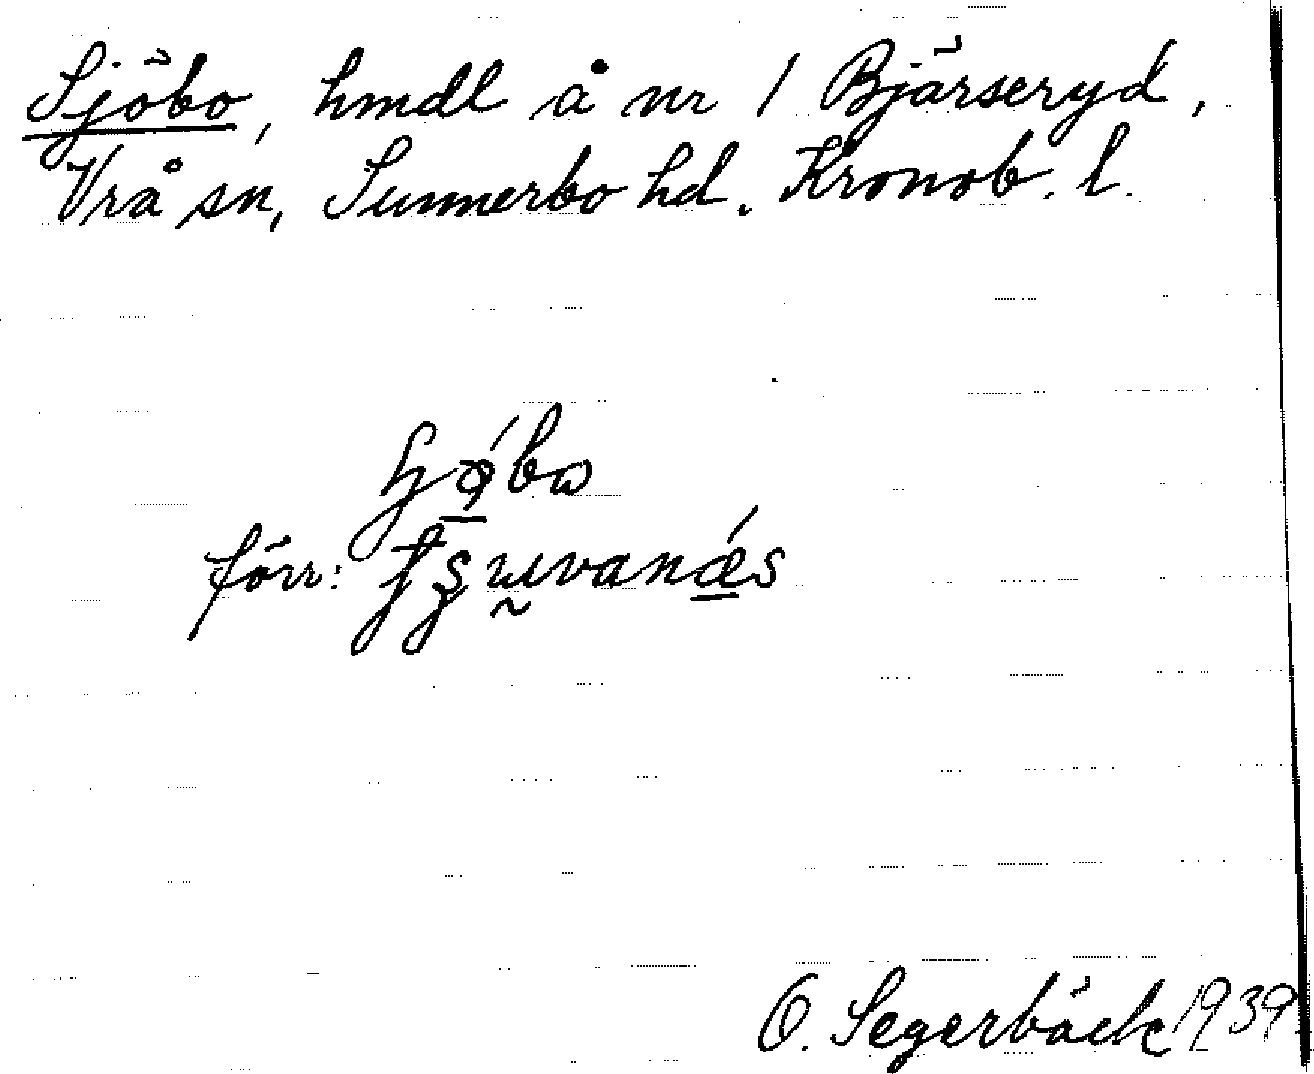 Sjöbo, hmdl å nr 1 Bjärseryd,
Vrå sn, Sunnerbo hd. Kronob. l.
förr:
O. Segerbäck 1939